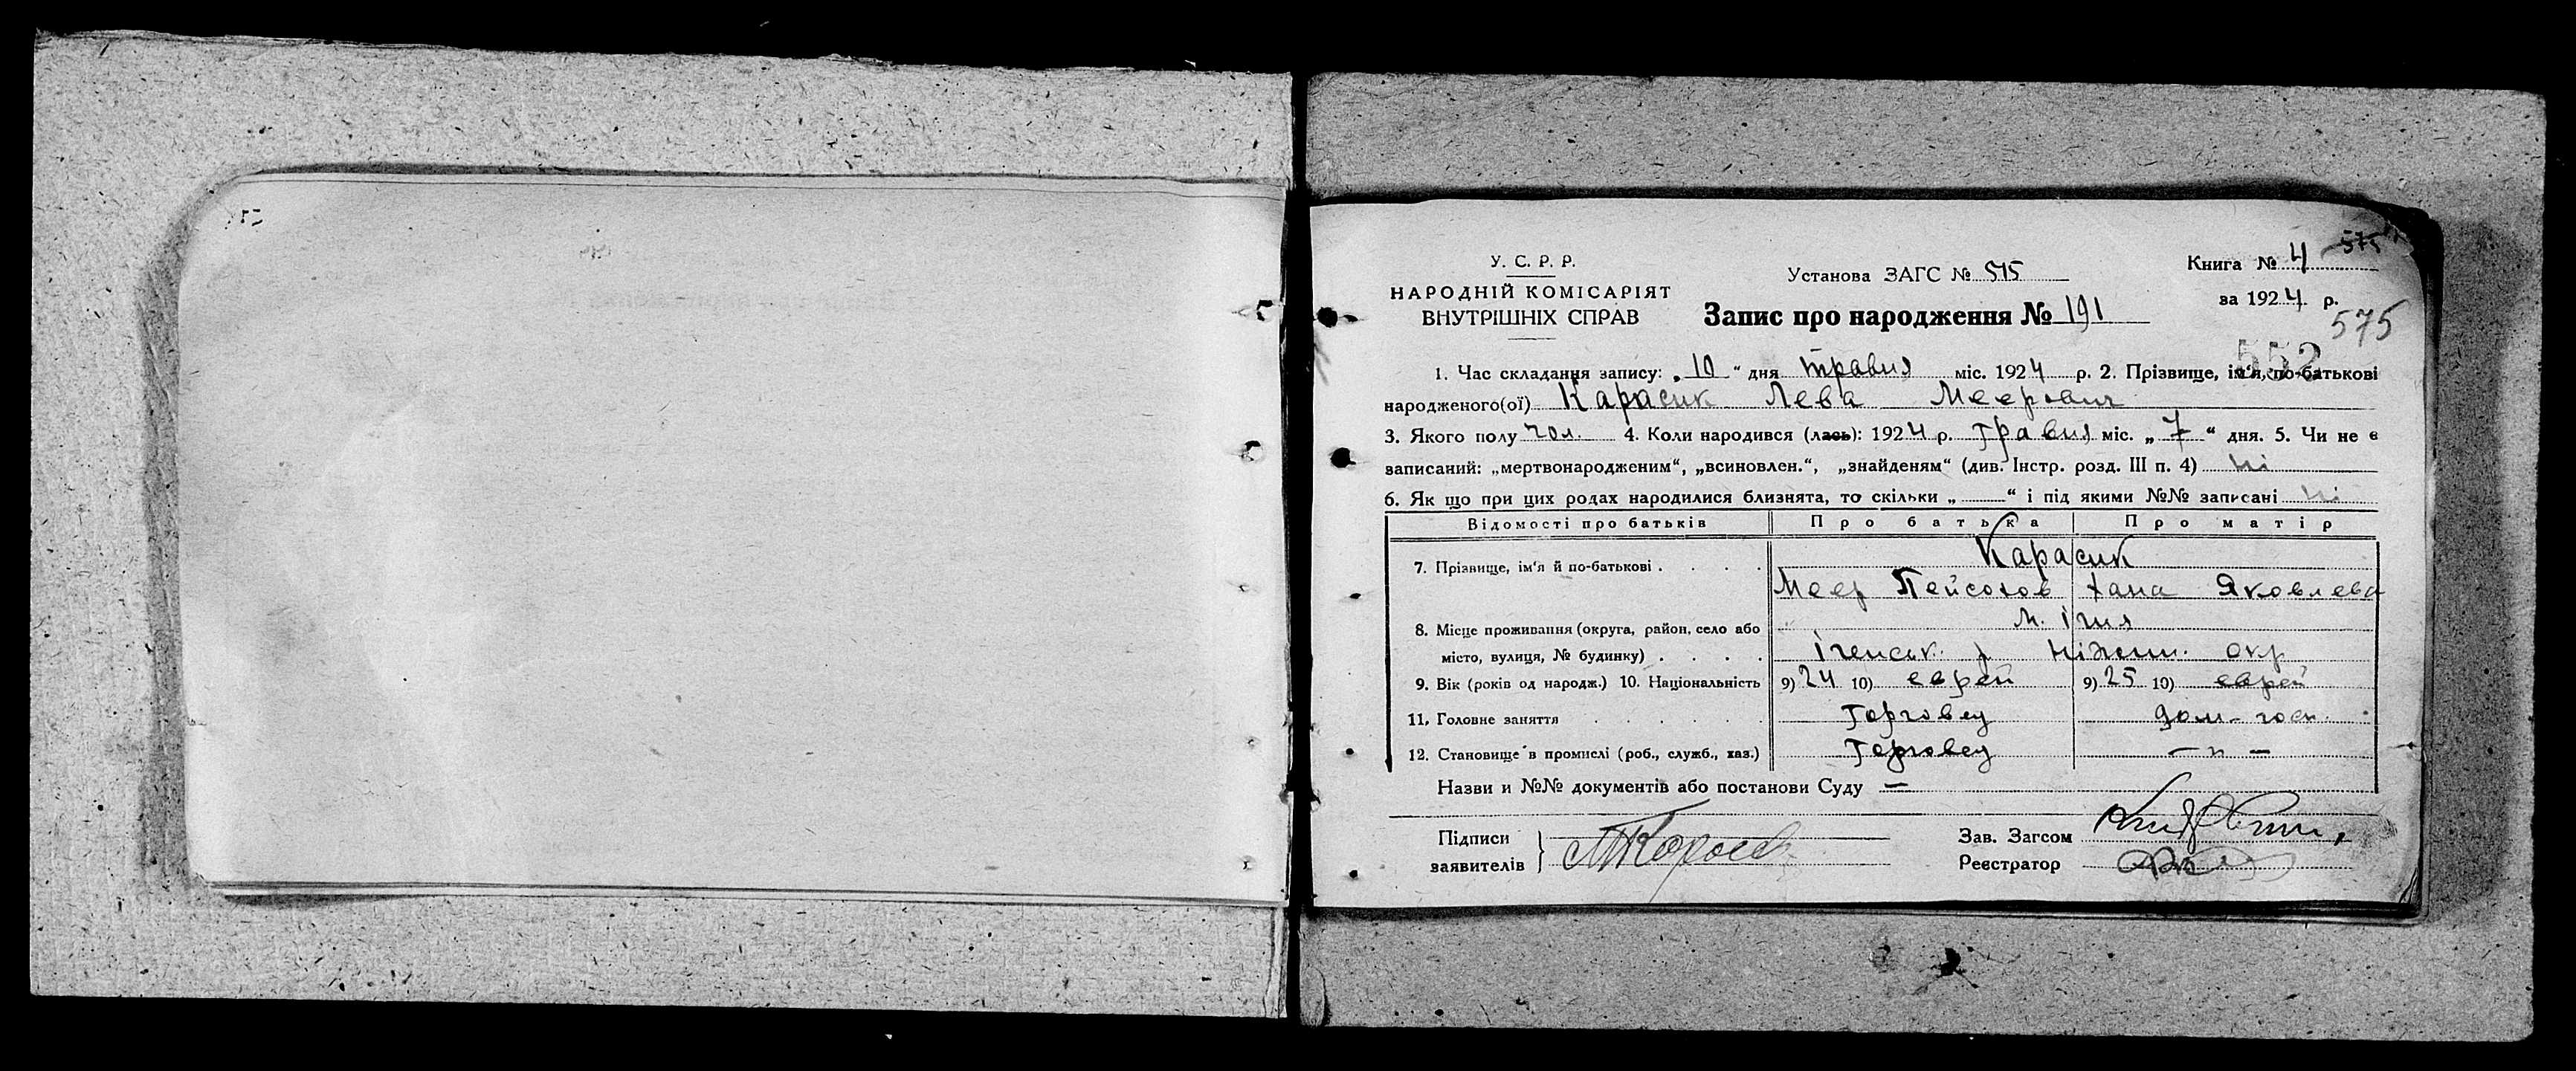 575
У. С. Р. Р.
НАРОДНІЙ КОМІСАРІЯТ
ВНУТРІШНІХ СПРАВ
Установа ЗАГС № 515
Запис про народження № 191
Книга № 4
за 1924 р.
575
552
1. Час складання запису: „10“ дня травня міс. 1924 р. 2. Прізвище, ім'я, по-батькові
народженого(ої) Карасик Лева Меерович
3. Якого полу чол. 4. Коли народився (лась): 1924 р. травня міс. „7“ дня. 5. Чи не є
записаний: „мертвонародженим“, „всиновлен.“, „знайденям“ (див. Інстр. розд. III п. 4) ні
6. Як що при цих родах народилися близнята, то скільки „ “ і під якими №№ записані ні
Відомості про батьків Про батька Про матір
7. Прізвище, ім'я й по-батькові . . . . Карасик
Меер Пейсохов Хана Яковлева
8. Місце проживання (округа, район, село або м. Ічня
місто, вулиця, № будинку) . . . . Іченськ. р Ніжин. окр
9. Вік (років од народж.) 10. Національність 9) 24 10) еврей 9) 25 10) еврей
11. Головне заняття . . . . . . Торговец дом. госп.
12. Становище в промислі (роб., служб., хаз.) Торговец — „ —
Назви и №№ документів або постанови Суду —
Підписи
заявителів
Зав. Загсом
Реєстратор